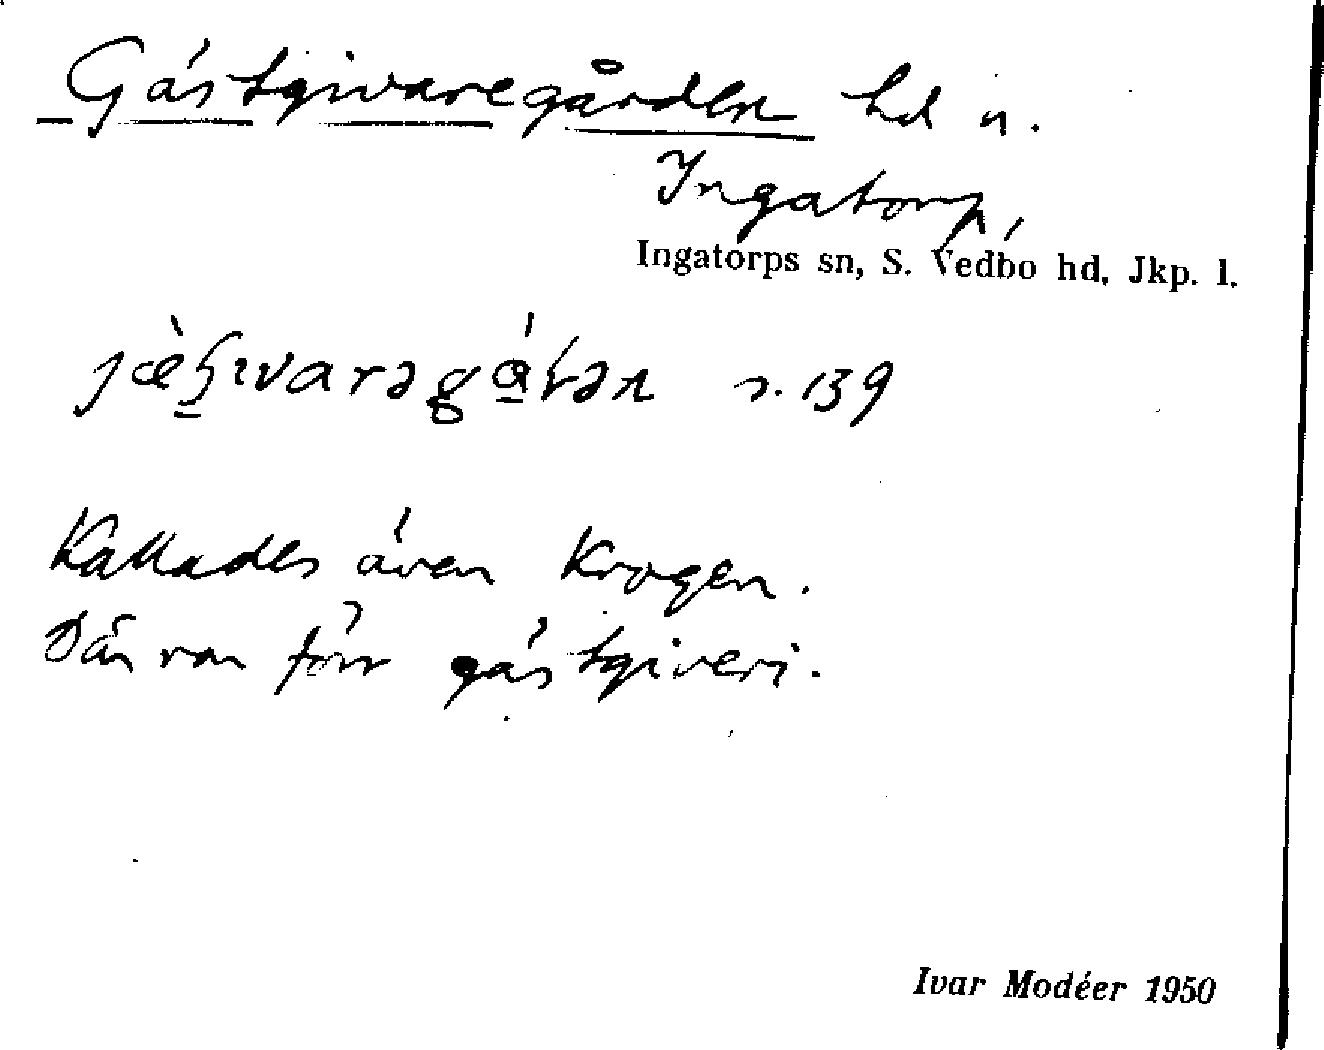 Gästgivaregården hd u.
Ingatorp,
Ingatorps sn, S. Vedbo hd, Jkp. l.
s. 139
Kallades även Krogen.
Där var förr gästgiveri.
Ivar Modéer 1950